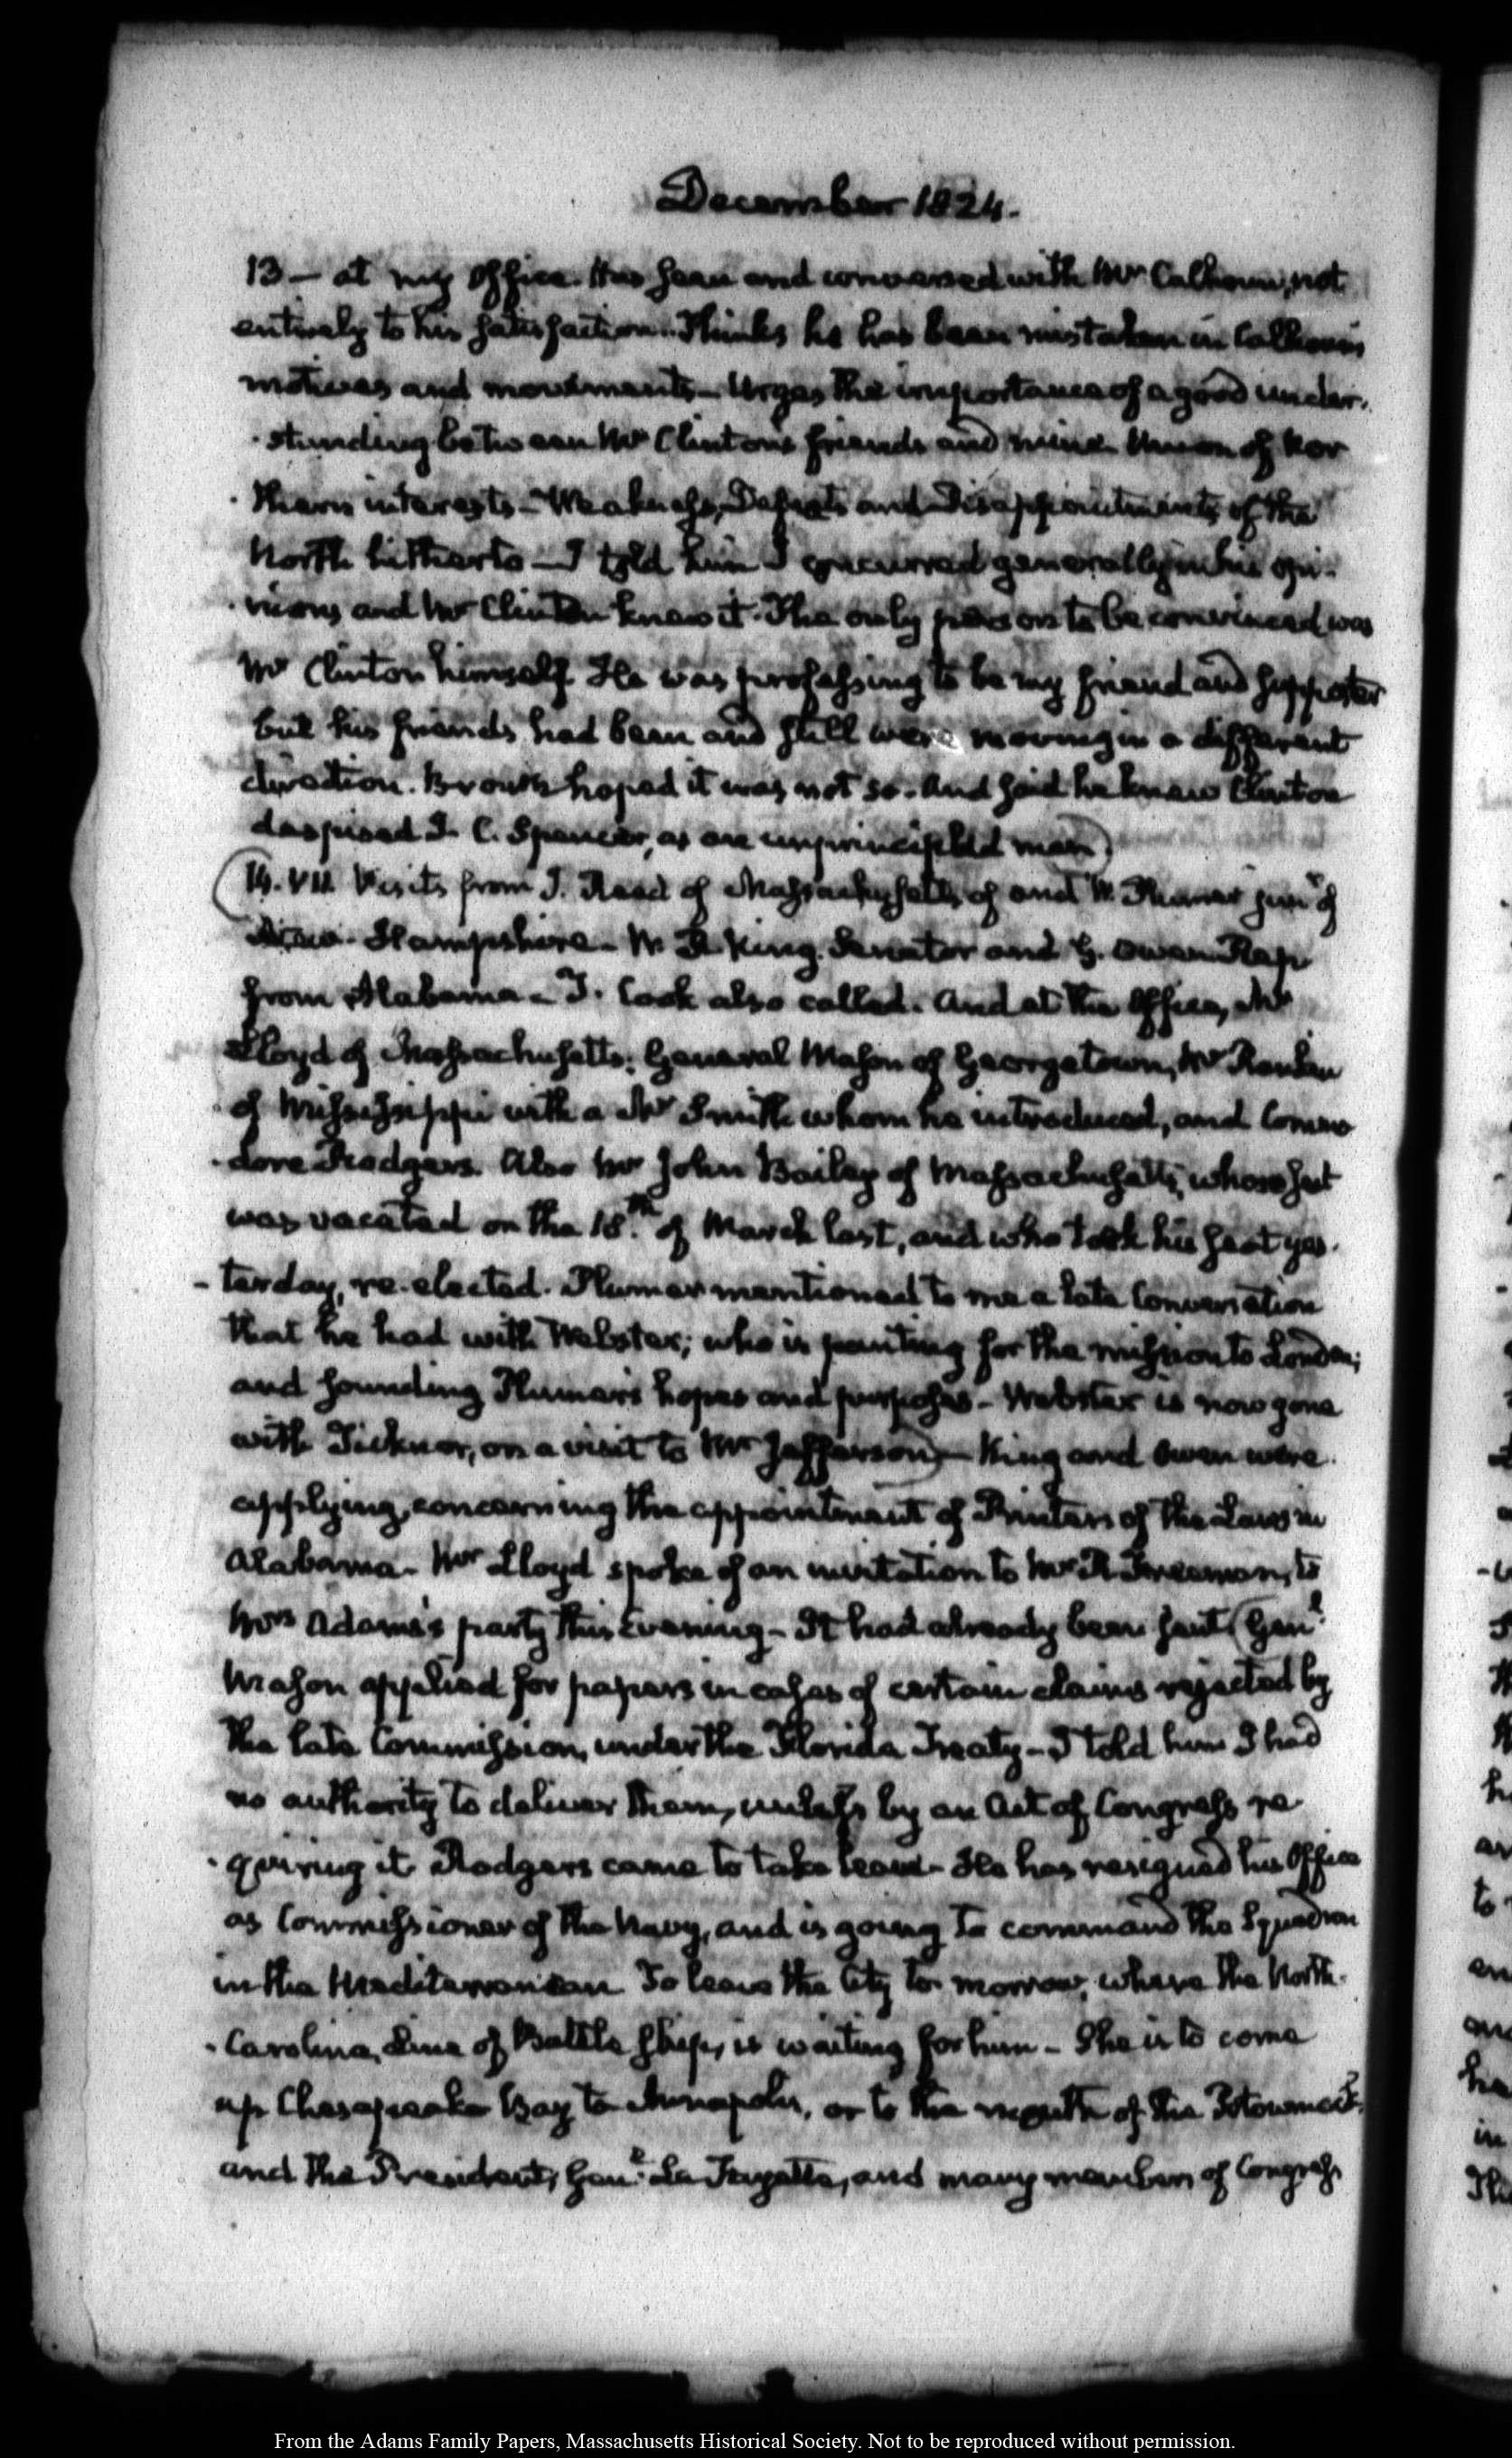 December 1824.
13 — at my Office. Has seen and conversed with Mr Calhoun, not
entirely to his satisfaction. Thinks he has been mistaken in Calhoun's
motives and movements — Urges the importance of a good under-
-standing between Mr Clinton's friends and mine. Union of Nor
-thern interests — Weakness, Defeats and Disappointments of the
North hitherto — I told him I concurred generally in his opi-
-nions and Mr Clinton knew it. The only person to be convinced was
Mr Clinton himself. He was professing to be my friend and supporter
but his friends had been and still were moving in a different
direction. Brown hoped it was not so. And said he knew Clinton
despised J. C. Spencer, as an unprincipled man)
(14. VII. Visits from J. Reed of Massachusetts, of and W. Plumer junr of
New-Hampshire — W. R King. Senator and G. Owen Rep
from Alabama — J. Cook also called. And at the Office, Mr
Lloyd of Massachusetts; General Mason of Georgetown, Mr Rankin
of Mississippi with a Mr Smith whom he introduced, and Commo
-dore Rodgers. Also Mr John Bailey of Massachusetts, whose seat
was vacated on the 18.th of March last, and who took his seat yes-
-terday, re-elected. Plumer mentioned to me a late Conversation
that he had with Webster; who is panting for the mission to London;
and sounding Plumer's hopes and purposes — Webster is now gone
with Ticknor, on a visit to Mr Jefferson) — King and Owen were
applying, concerning the appointment of Printers of the Laws in
Alabama — Mr Lloyd spoke of an invitation to Mr R Freeman, to
Mrs Adams's party this Evening — It had already been sent (Genl
Mason applied for papers in cases of certain claims rejected by
the late Commission, under the Florida Treaty — I told him I had
no authority to deliver them, unless by an Act of Congress re-
-quiring it. Rodgers came to take leave — He has resigned his Office
as Commissioner of the Navy, and is going to command the Squadron
in the Mediterranean To leave the City to-morrow, where the North-
-Carolina, Line of Battle ship, is waiting for him — She is to come
up Chesapeake Bay to Annapolis, or to the mouth of the Potowmack,
and the President, Genl. La Fayette, and many members of Congress
From the Adams Family Papers, Massachusetts Historical Society. Not to be reproduced without permission.